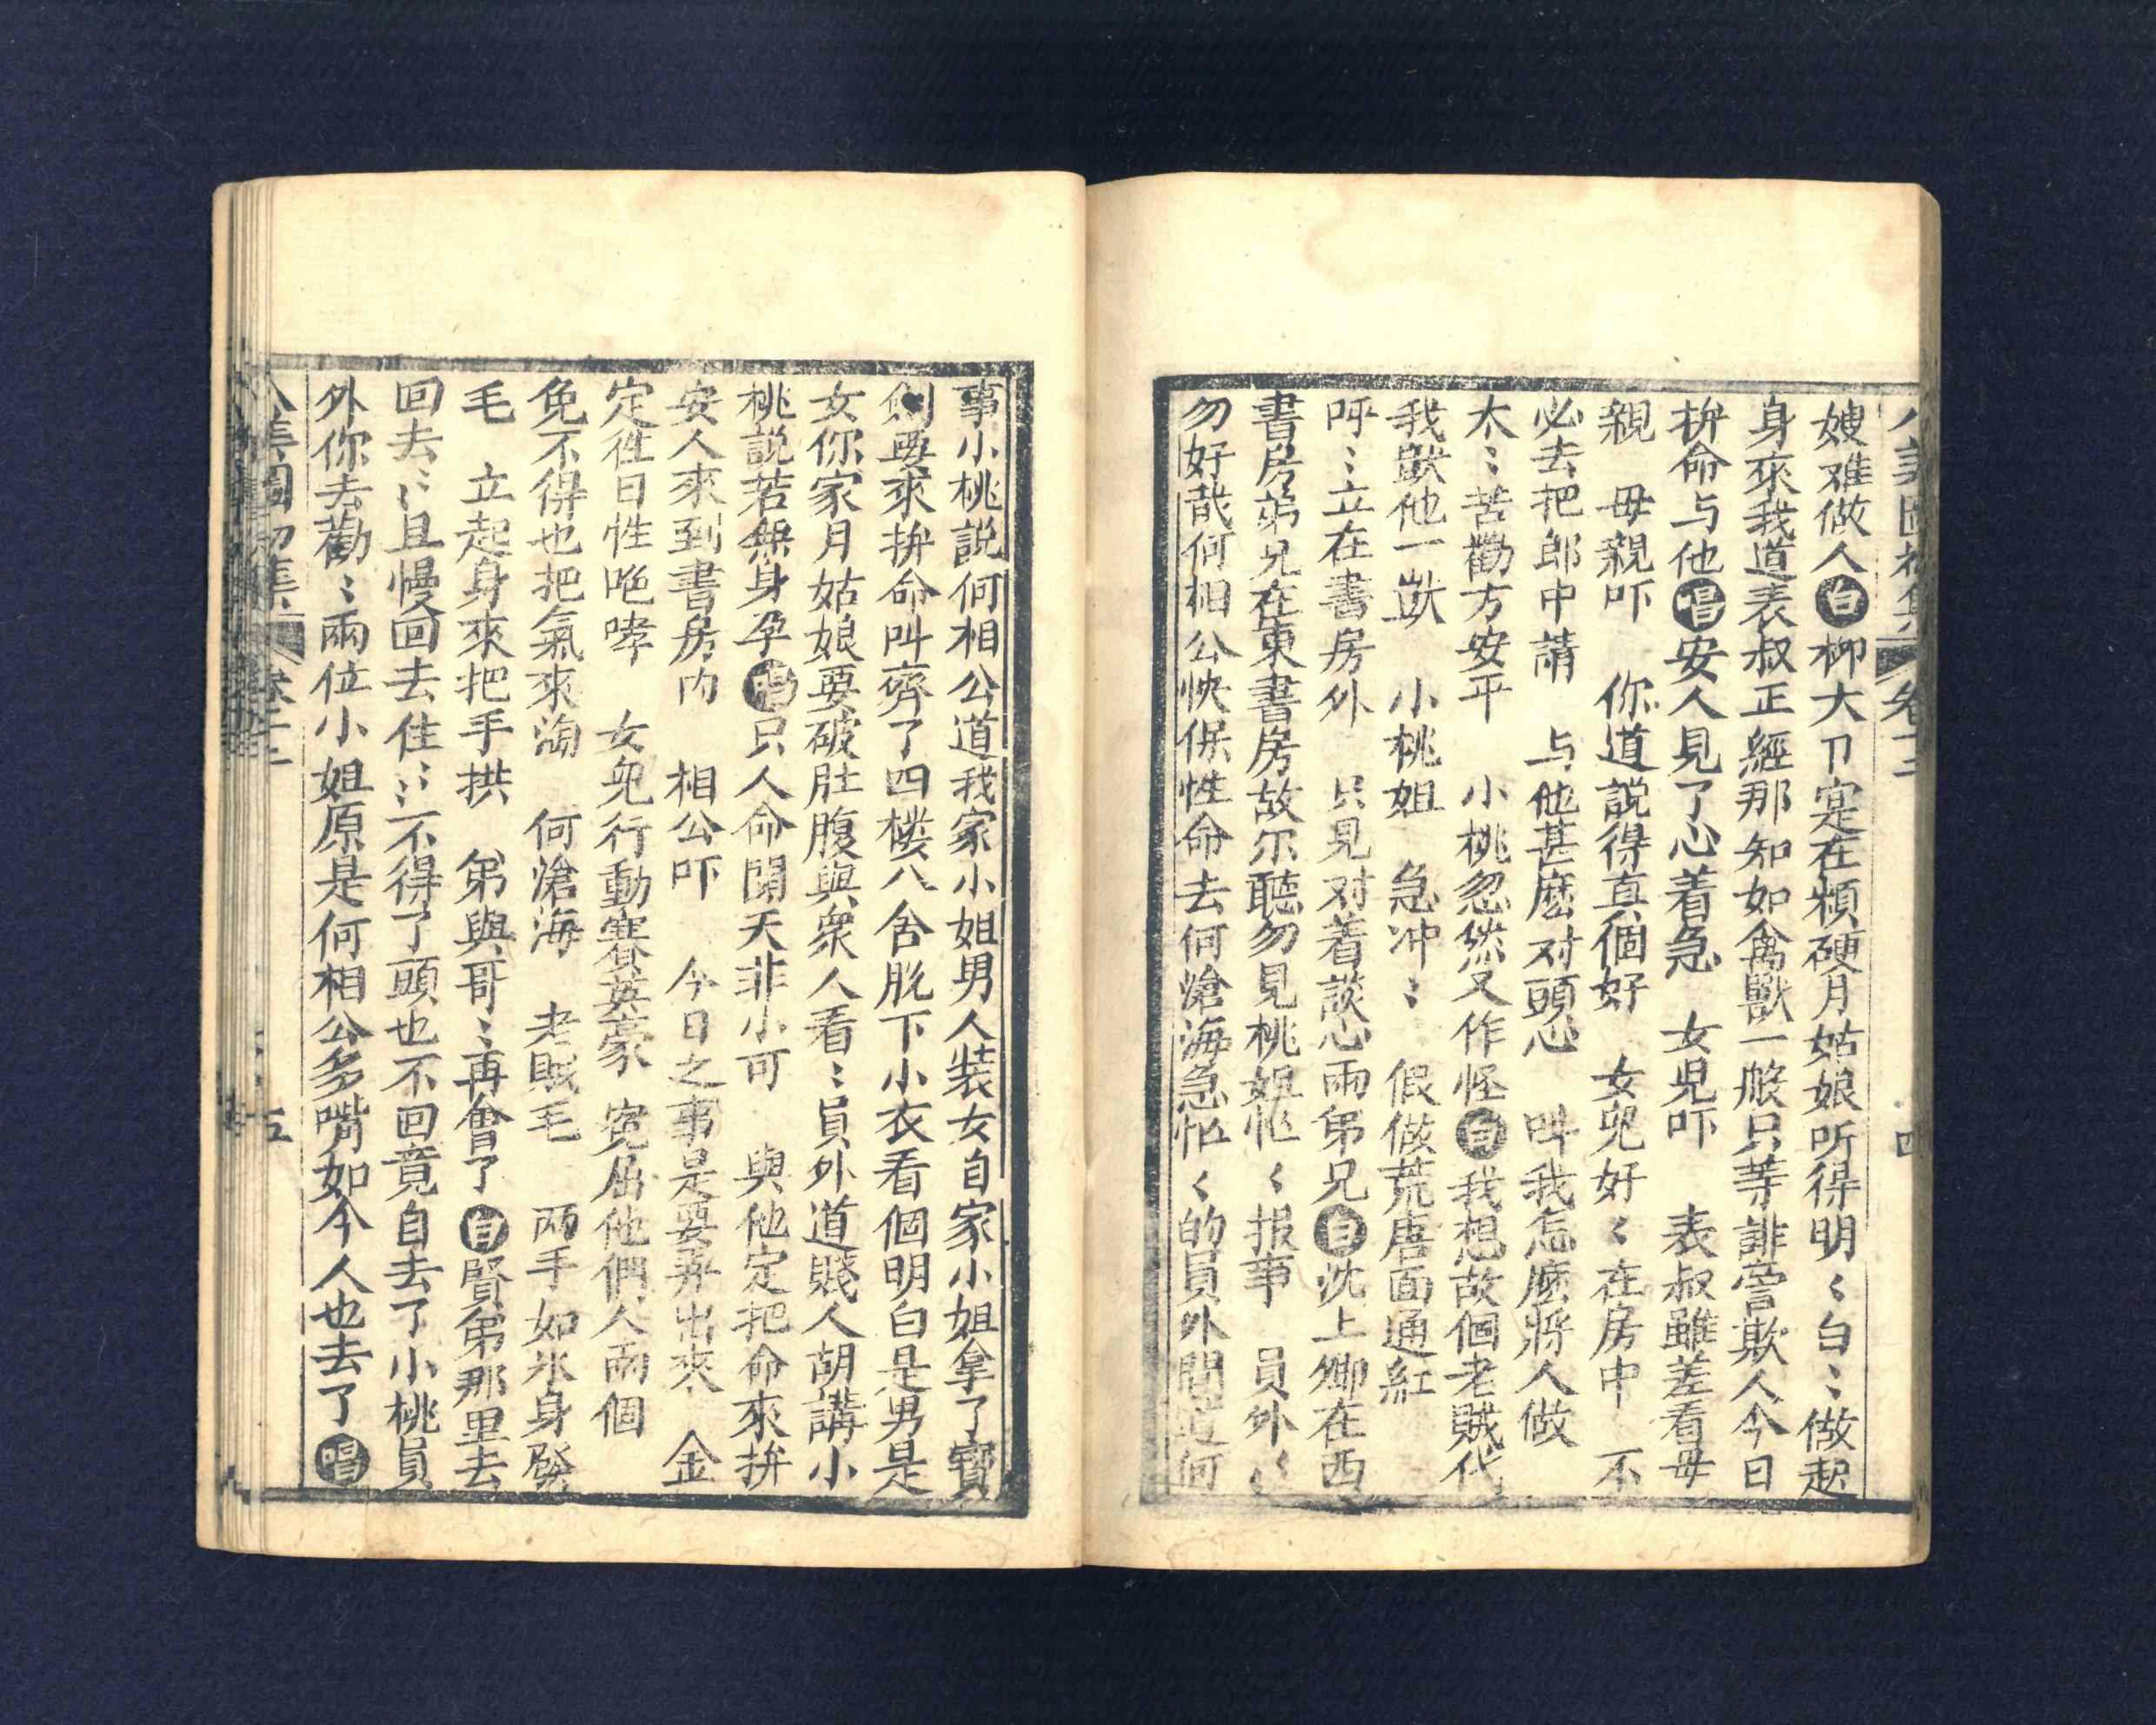 八美圖初集 卷十二 四
嫂难做人白柳大刀寔在頼硬月姑娘听得明〻白〻做起
身來我道表叔正經那知如禽獸一般只等誹謗欺人今日
拚命与他唱安人見了心着急 女児吓 表叔雖差看毋
親 毋親吓 你道説得真個好 女兒好〻在房中 不
必去把郎中請 与他甚麽对頭心 叫我怎麽將人做
太〻苦勸方安平 小桃忽然又作怪白我想故個老賊代
我獃他一獃 小桃姐 急冲〻 假做荒唐面通紅
呼〻立在書房外 只見对着談心兩弟兄白沈上卿在西
書房弟兄在東書房故尔聽勿見桃姐忙〻报事 員外〻
勿好哉何相公快保性命去何滄海急忙〻的員外問道何
事小桃説何相公道我家小姐男人装女自家小姐拿了寶
劍要來拚命叫齊了四樓八舍脱下小衣看個明白是男是
女你家月姑娘要破肚腹與衆人看〻員外道賤人胡講小
桃説若無身孕唱只人命關天非小可 與他定把命來拚
安人來到書房内 相公吓 今日之事是要弄出來 金
定徃日性咆哮 女兒行動賽英豪 寃屈他們人兩個
免不得也把氣來淘 何滄海 老賊毛 兩手如氷身發
毛 立起身來把手拱 弟與哥〻再會了白賢弟那里去
回去〻且慢回去住〻不得了頭也不回竟自去了小桃員
外你去勸〻兩位小姐原是何相公多嘴如今人也去了唱
八美圖初集 卷十二 五